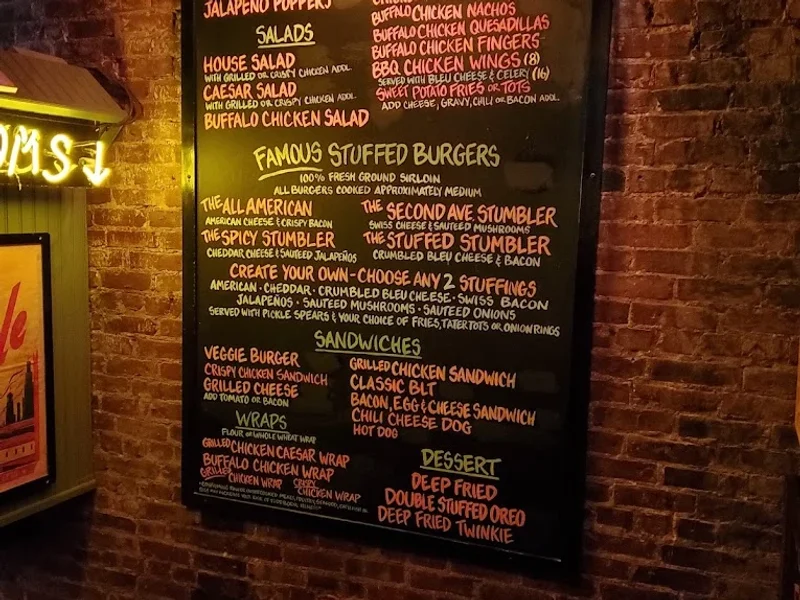 OMS ↓
le
JALAPEÑO POPPERS
SALADS
HOUSE SALAD
WITH GRILLED OR CRISPY CHICKEN ADDL.
CAESAR SALAD
WITH GRILLED OR CRISPY CHICKEN ADDL.
BUFFALO CHICKEN SALAD
BUFFALO CHICKEN NACHOS
BUFFALO CHICKEN QUESADILLAS
BUFFALO CHICKEN FINGERS
BBQ CHICKEN WINGS (8)
SERVED WITH BLEU CHEESE & CELERY (16)
SWEET POTATO FRIES OR TOTS
ADD CHEESE, GRAVY, CHILI OR BACON ADDL.
FAMOUS STUFFED BURGERS
100% FRESH GROUND SIRLOIN
ALL BURGERS COOKED APPROXIMATELY MEDIUM
THE ALL AMERICAN
AMERICAN CHEESE & CRISPY BACON
THE SPICY STUMBLER
CHEDDAR CHEESE & SAUTEED JALAPEÑOS
THE SECOND AVE STUMBLER
SWISS CHEESE & SAUTEED MUSHROOMS
THE STUFFED STUMBLER
CRUMBLED BLEU CHEESE & BACON
CREATE YOUR OWN - CHOOSE ANY 2 STUFFINGS
AMERICAN · CHEDDAR · CRUMBLED BLEU CHEESE · SWISS BACON
JALAPEÑOS · SAUTEED MUSHROOMS · SAUTEED ONIONS
SERVED WITH PICKLE SPEARS & YOUR CHOICE OF FRIES, TATER TOTS OR ONION RINGS
SANDWICHES
VEGGIE BURGER
CRISPY CHICKEN SANDWICH
GRILLED CHEESE
ADD TOMATO OR BACON
GRILLED CHICKEN SANDWICH
CLASSIC BLT
BACON, EGG & CHEESE SANDWICH
CHILI CHEESE DOG
HOT DOG
WRAPS
FLOUR OR WHOLE WHEAT WRAP
GRILLED CHICKEN CAESAR WRAP
BUFFALO CHICKEN WRAP
GRILLED CHICKEN WRAP CRISPY CHICKEN WRAP
DESSERT
DEEP FRIED
DOUBLE STUFFED OREO
DEEP FRIED TWINKIE